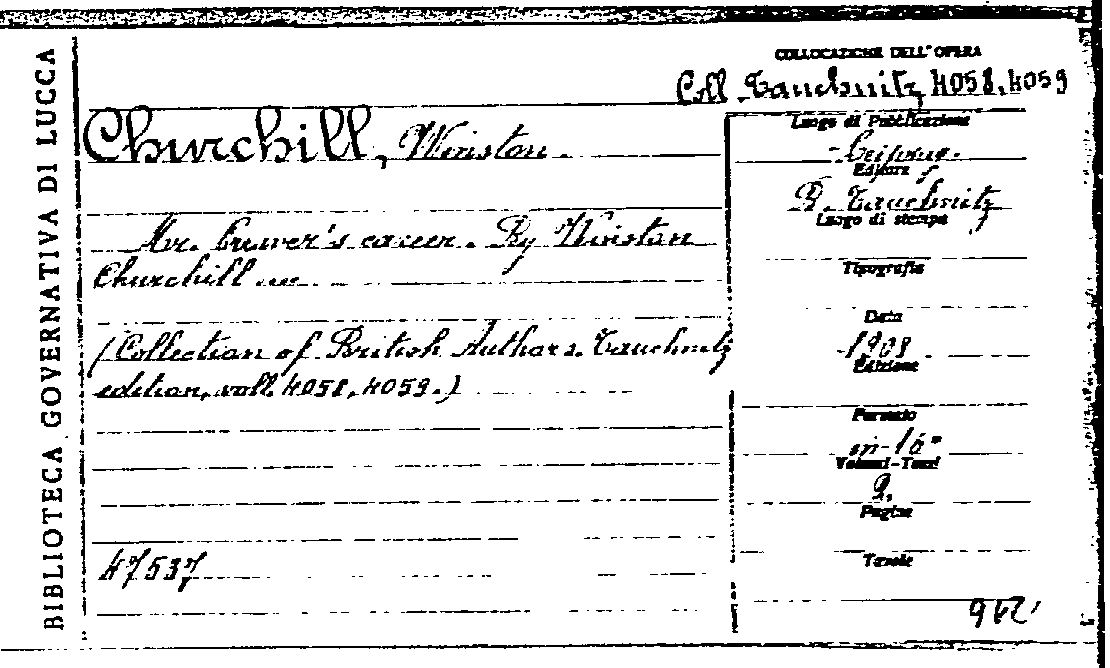 BIBLIOTECA GOVERNATIVA DI LUCCA
COLLOCAZIONE DELL'OPERA
Coll. Tauchnitz, 4058, 4059
Churchill, Winston.
Mr. Crewe's career. By Winston
Churchill ...
(Collection of British Authors. Tauchnitz
edition, voll. 4058, 4059.)
47537
Luogo di Pubblicazione
Leipzig.
Editore
B. Tauchnitz
Luogo di stampa
Tipografia
Data
1908
Edizione
Formato
in-16°
Volumi-Tomi
2.
Pagine
Tavole